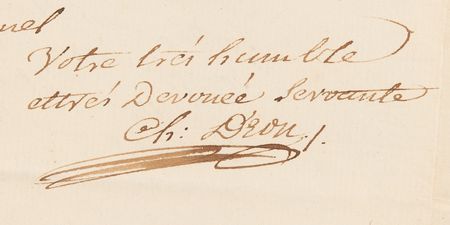 uel
Votre très humble
et très Devouée Servante
Ch: D'Eon